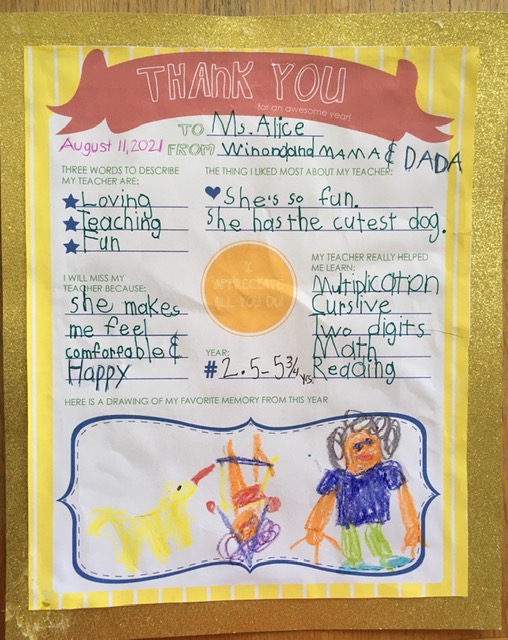 THANK YOU
for an awesome year!
TO Ms. Alice
August 11, 2021
FROM Winona and MAMA & DADA
THREE WORDS TO DESCRIBE
MY TEACHER ARE:
Loving
Teaching
Fun
THE THING I LIKED MOST ABOUT MY TEACHER:
She's so fun.
She has the cutest dog.
I WILL MISS MY
TEACHER BECAUSE:
she makes
me feel
comforeable &
Happy
I
APPRECIATE
ALL YOU DO!
MY TEACHER REALLY HELPED
ME LEARN:
Multiplication
Cursive
Two digits
Math
Reading
YEAR:
# 2.5-5 3/4 yrs.
HERE IS A DRAWING OF MY FAVORITE MEMORY FROM THIS YEAR